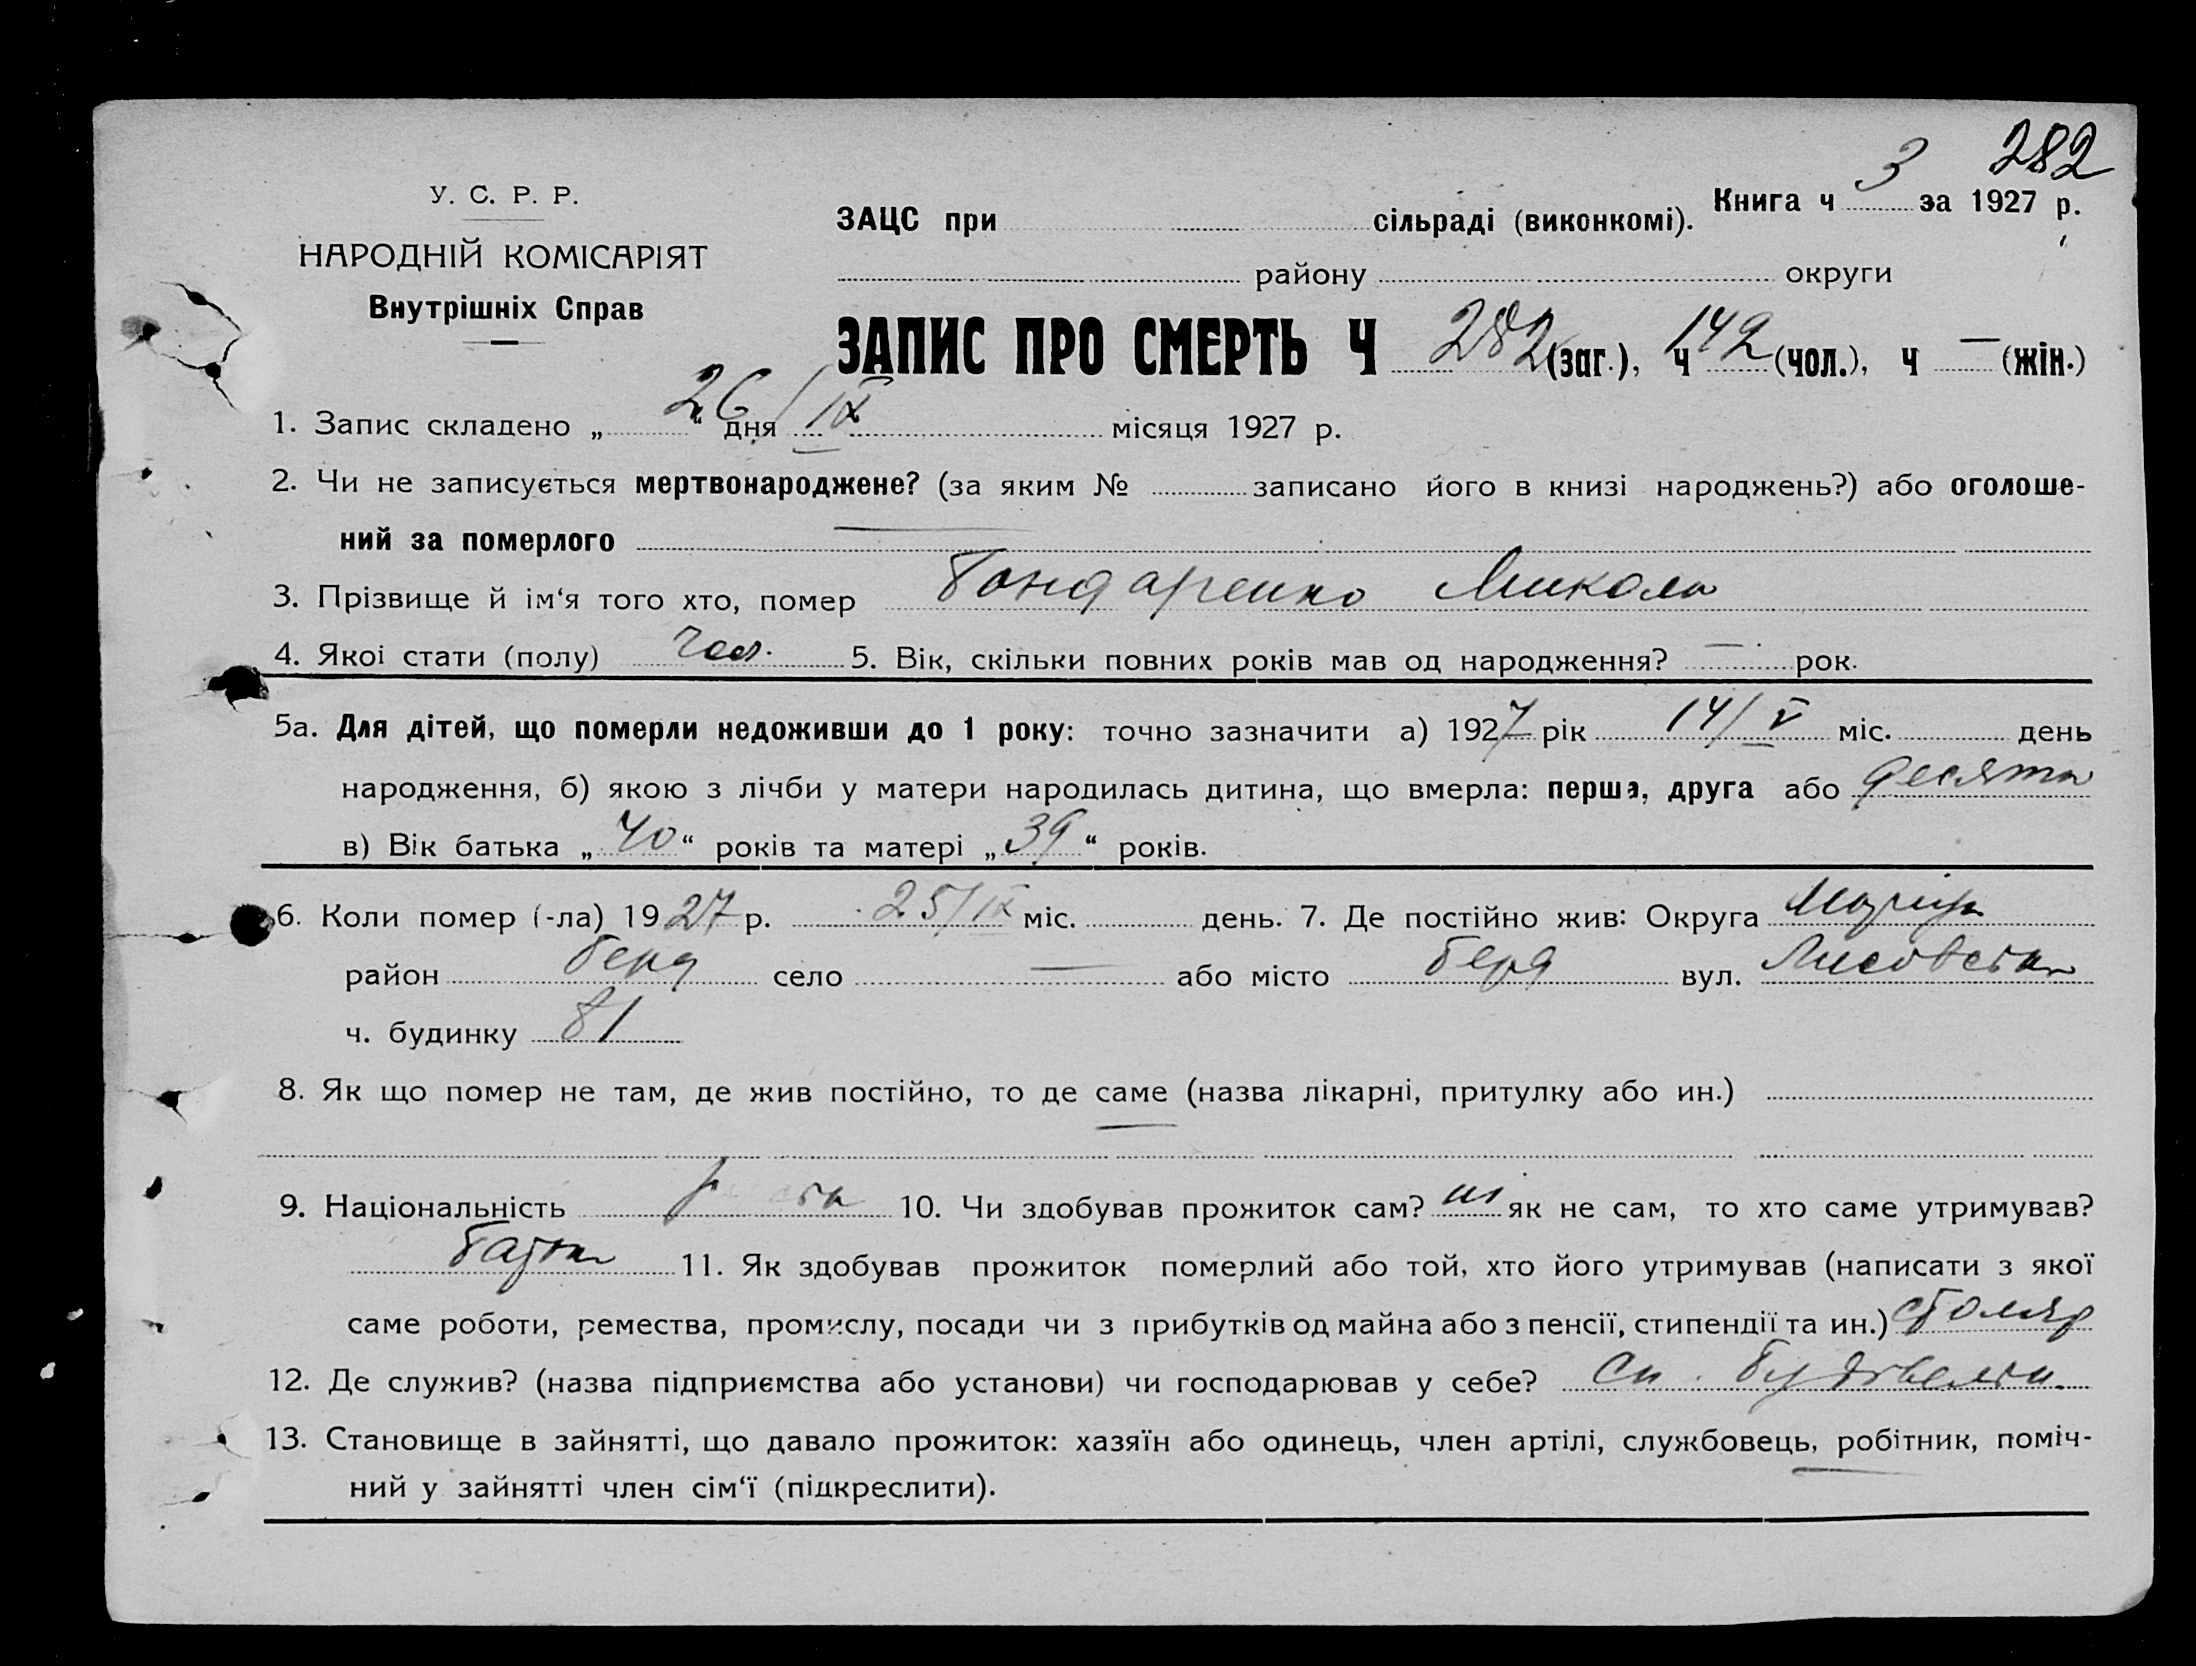 282
У. С. Р. Р.
НАРОДНІЙ КОМІСАРІЯТ
Внутрішніх Справ
ЗАЦС при сільраді (виконкомі). Книга ч 3 за 1927 р.
району округи
ЗАПИС ПРО СМЕРТЬ Ч 282 (заг.), ч 142 (чол.), ч — (жін.)
1. Запис складено „ 26 “ дня / IX місяця 1927 р.
2. Чи не записується мертвонароджене? (за яким № записано його в книзі народжень?) або оголоше-
ний за померлого —
3. Прізвище й ім‘я того хто, помер Бондаренко Микола
4. Якої стати (полу) чол. 5. Вік, скільки повних років мав од народження? — рок.
5а. Для дітей, що померли недоживши до 1 року: точно зазначити а) 1927 рік 14/V міс. день
народження, б) якою з лічби у матери народилась дитина, що вмерла: перша, друга або десята
в) Вік батька „ 40 “ років та матері „ 39 “ років.
6. Коли помер (-ла) 1927 р. 25/IX міс. день. 7. Де постійно жив: Округа
район Берд село — або місто Берд вул. Лисовська
ч. будинку 81
8. Як що помер не там, де жив постійно, то де саме (назва лікарні, притулку або ин.)
9. Національність 10. Чи здобував прожиток сам? ні як не сам, то хто саме утримував?
батьк 11. Як здобував прожиток померлий або той, хто його утримував (написати з якої
саме роботи, ремества, промислу, посади чи з прибутків од майна або з пенсії, стипендії та ин.) столяр
12. Де служив? (назва підприємства або установи) чи господарював у себе?
13. Становище в зайнятті, що давало прожиток: хазяїн або одинець, член артілі, службовець, робітник, поміч-
ний у зайнятті член сім‘ї (підкреслити).